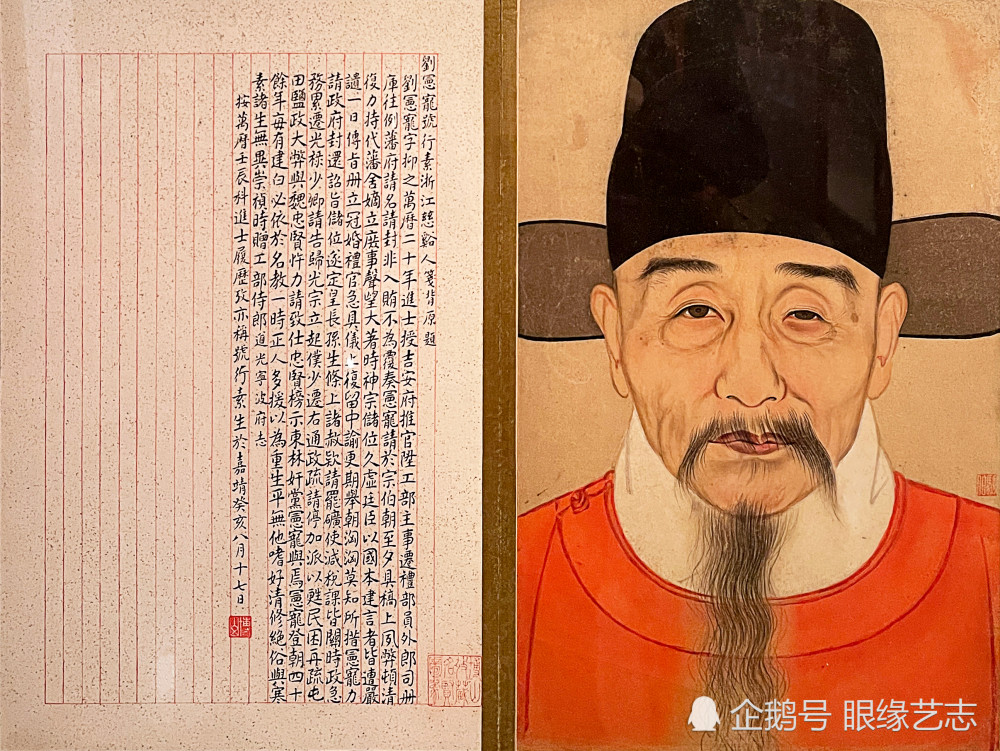 劉憲寵號行素浙江慈谿人箋背原題
劉憲寵字抑之萬曆二十年進士授吉安府推官陞工部主事遷禮部員外郎司册
庫往例藩府請名請封非入賄不為覆奏憲寵請於宗伯朝至夕具稿上夙弊頓清
復力持代藩舍嫡立庶事聲望大著時神宗儲位久虛廷臣以國本建言者皆遭嚴
譴一日傳旨册立冠婚禮官急具儀上復留中諭更期舉朝洶洶莫知所措憲寵力
請政府封還詔旨儲位遂定皇長孫生條上諸赦款請罷礦使減稅課皆關時政急
務累遷光祿少卿請告歸光宗立起僕少遷右通政疏請停加派以甦民困再疏屯
田鹽政大弊與魏忠賢忤力請致仕忠賢榜示東林奸黨憲寵與焉憲寵登朝四十
餘年每有建白必依於名教一時正人多援以為重生平無他嗜好清修絕俗與寒
素諸生無異崇禎時贈工部侍郎道光寧波府志
按萬曆壬辰科進士履歷攷亦稱號行素生於嘉靖癸亥八月十七日
企鹅号 眼缘艺志